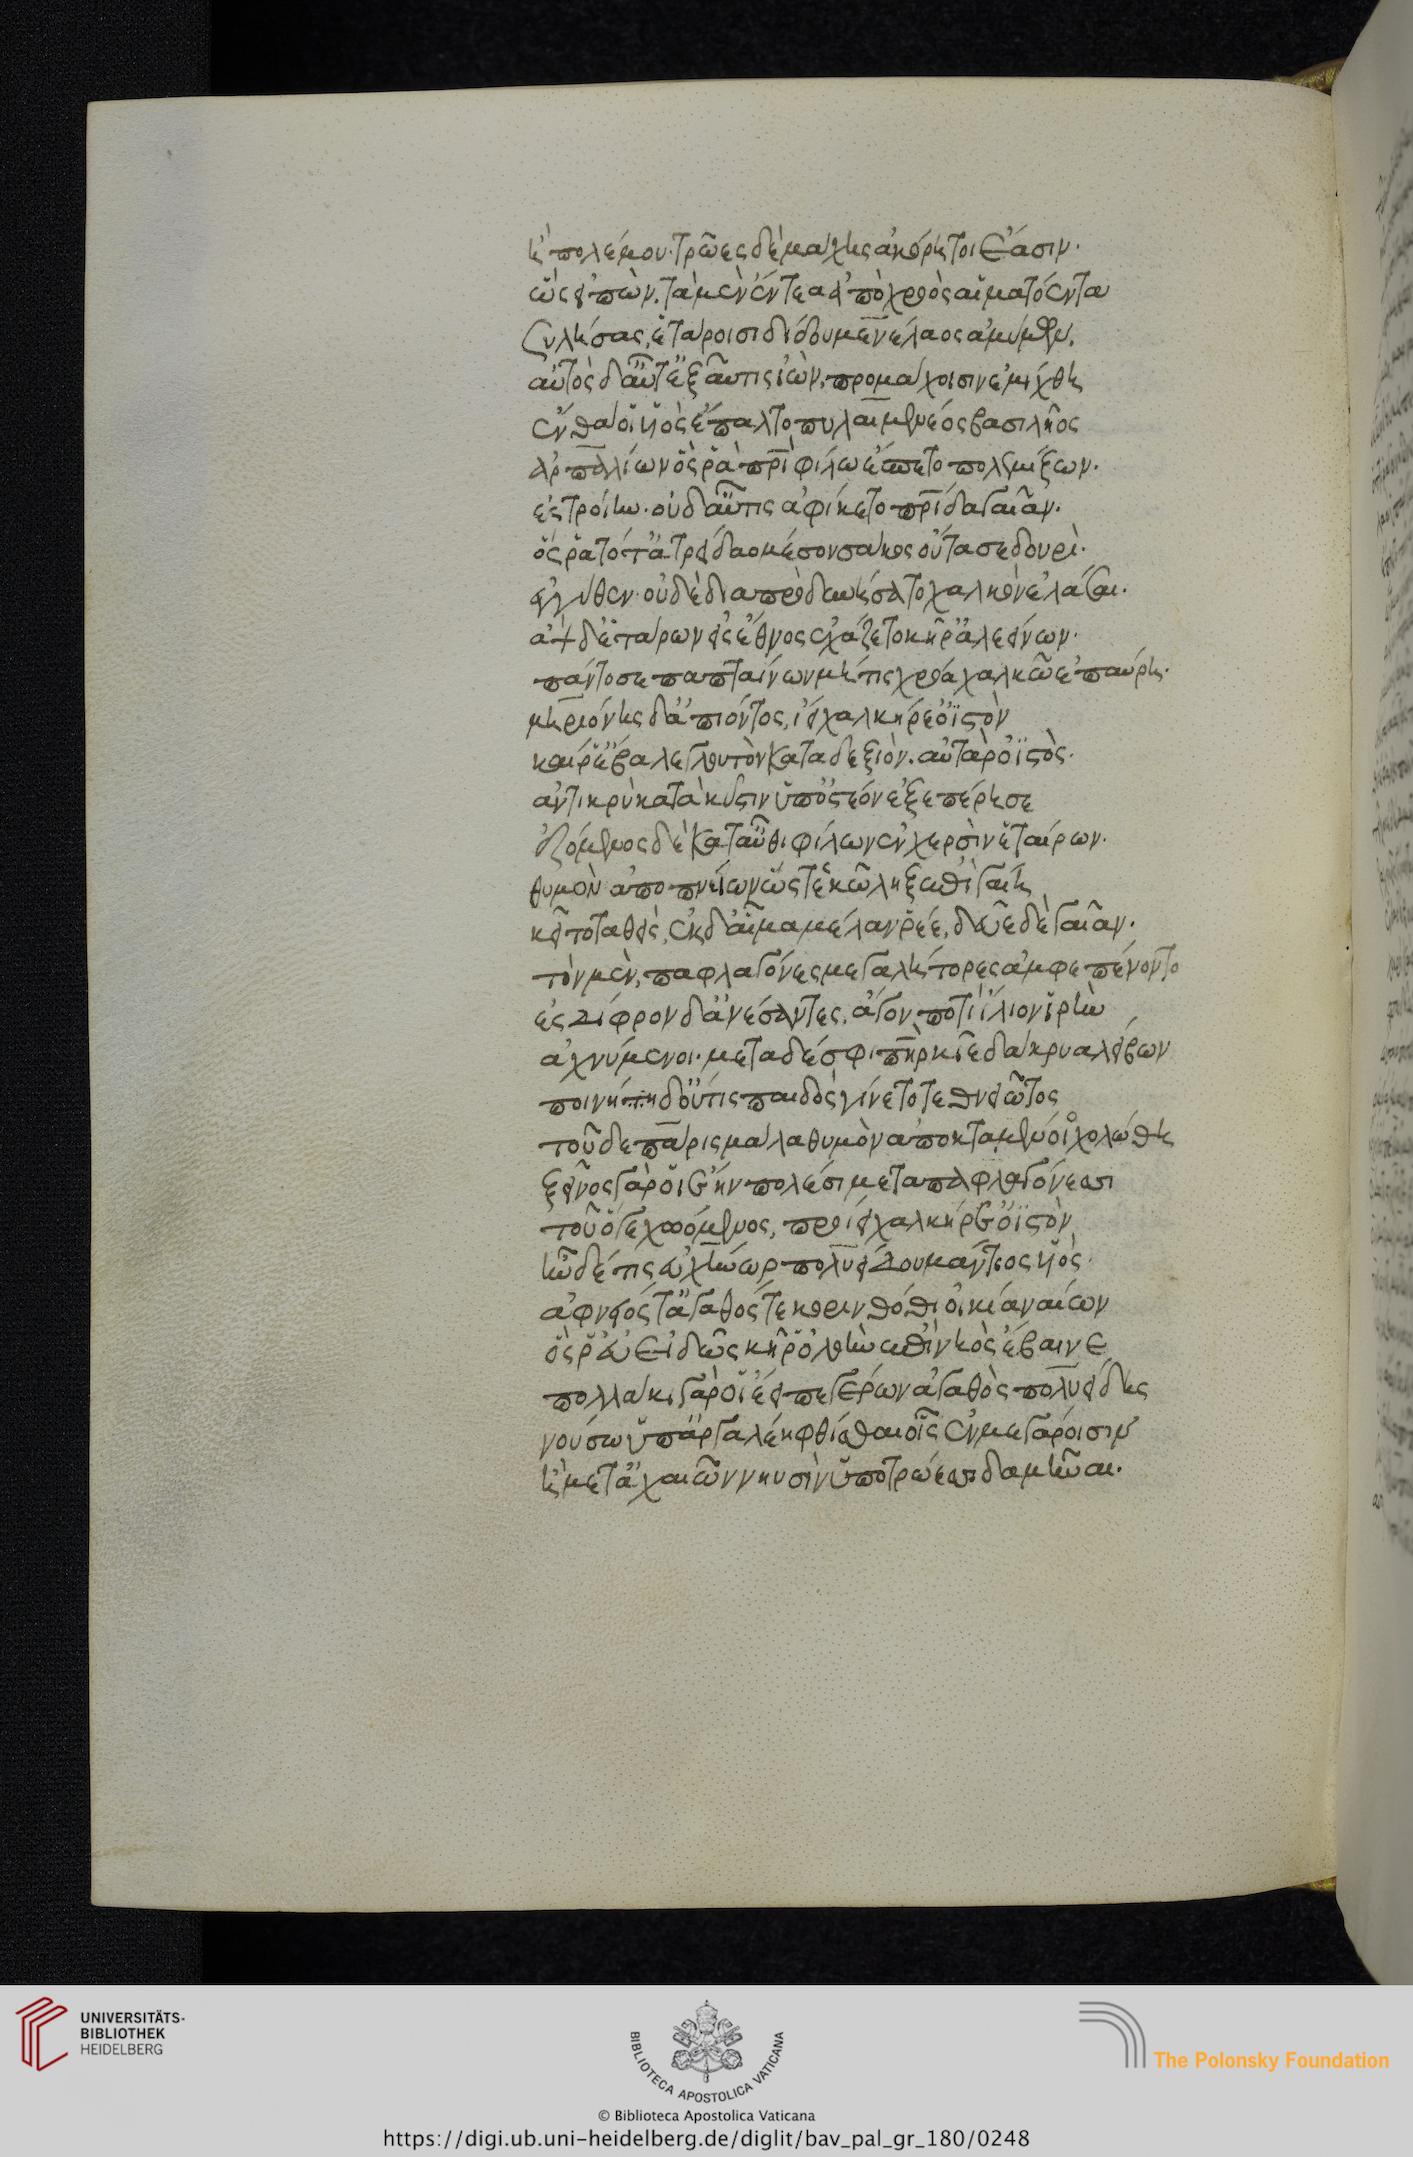 ἢ πολέμου· τρῶες δὲ μάχης ἀκόρητοι ἔασιν·
ὣς εἰπὼν, τὰ μὲν ἔντεα ἀπὸ χροὸς αἱματόεντα
συλήσας, ἑτάροισι δίδου μενέλαος ἀμύμων.
αὐτὸς δ' αὖτ' ἐξαῦτις ἰὼν, προμάχοισιν ἐμίχθη
ἔνθά οἱ υἱὸς ἔπαλτο πυλαιμένεος βασιλῆος
ἁρπαλίων ὅς ῥα πατρὶ φίλω ἕπετο πολεμίξων.
ἐς τροίην· οὐδ' αὖτις ἀφίκετο πατρίδα γαῖαν.
ὅς ῥα τότ' ἀτρείδαο μέσον σάκος οὔτασε δουρὶ·
ἐγγύθεν· οὐδὲ διαπρὸ δυνήσατο χαλκὸν ἐλάσσαι.
ἂψ δ' ἑτάρων εἰς ἔθνος ἐχάζετο κῆρ' ἀλεείνων·
πάντοσε παπταίνων μή τις χρόα χαλκῶ ἐπαύρη.
μηριόνης δ' ἀπιόντος, ἵει χαλκήρε' ὀϊστὸν
καί ῥ' ἔβαλε γλουτὸν κατὰ δεξιὸν. αὐτὰρ ὀϊστὸς·
ἀντικρὺ κατὰ κύστιν ὑπ' ὀστέον ἐξεπέρησε
ἑζόμενος δὲ καταῦθι φίλων ἐν χερσὶν ἑταίρων·
θυμὸν ἀποπνείων ὥς τε σκώληξ ἐπὶ γαίη
κεῖτο ταθεὶς, ἐκ δ' αἷμα μέλαν ῥέε, δεῦε δὲ γαῖαν·
τὸν μὲν, παφλαγόνες μεγαλήτορες ἀμφεπένοντο
ἐς δίφρον δ' ἀνέσαντες, ἄγον ποτὶ ἴλιον ἱρὴν
ἀχνύμενοι· μετὰ δέ σφι πατὴρ κίε δάκρυα λείβων
ποινὴ δ' οὔτις παιδὸς γίνετο τεθνειῶτος
τοῦ δὲ πάρις μάλα θυμὸν ἀποκταμένοιο χολώθη
ξεῖνος γάρ οἱ ἔην πολέσι μετὰ παφλαγόνεσσι
τοῦ ὅγε χωόμενος, προίει χαλκήρε' ὀϊστὸν
ἦν δέ τις εὐχήνωρ πολυείδου μάντιος υἱὸς·
ἀφνειός τ' ἀγαθός τε κορινθόθι οἰκία ναίων
ὅς ῥ' εὖ εἰδὼς κῆρ' ὀλοὴν ἐπὶ νηὸς ἔβαινε
πολλάκι γάρ οἱ ἔειπε γέρων ἀγαθὸς πολύειδης
νούσω ὑπ' ἀργαλέη φθίσθαι οἷς ἐν μεγάροισιν
ἢ μετ' ἀχαιῶν νηυσὶν ὑπὸ τρώεσσι δαμῆναι.
UNIVERSITÄTS-
BIBLIOTHEK
HEIDELBERG
BIBLIOTECA APOSTOLICA VATICANA
The Polonsky Foundation
© Biblioteca Apostolica Vaticana
https://digi.ub.uni-heidelberg.de/diglit/bav_pal_gr_180/0248